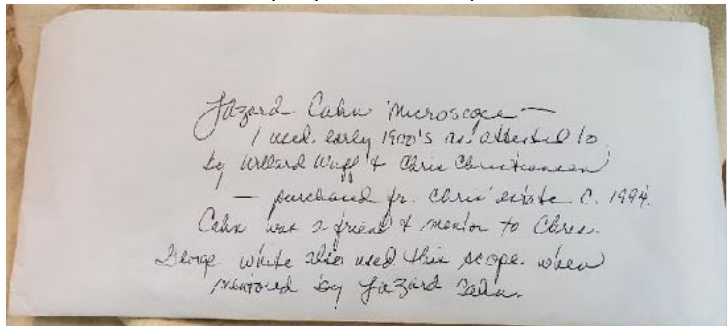 Lazard Cahn Microscope —
used early 1900's as attested to
by Willard Wulff & Chris Christensen
— purchased fr. Chris' estate C. 1994.
Cahn was a friend & mentor to Chris.
George White also used this scope when
mentored by Lazard Cahn.